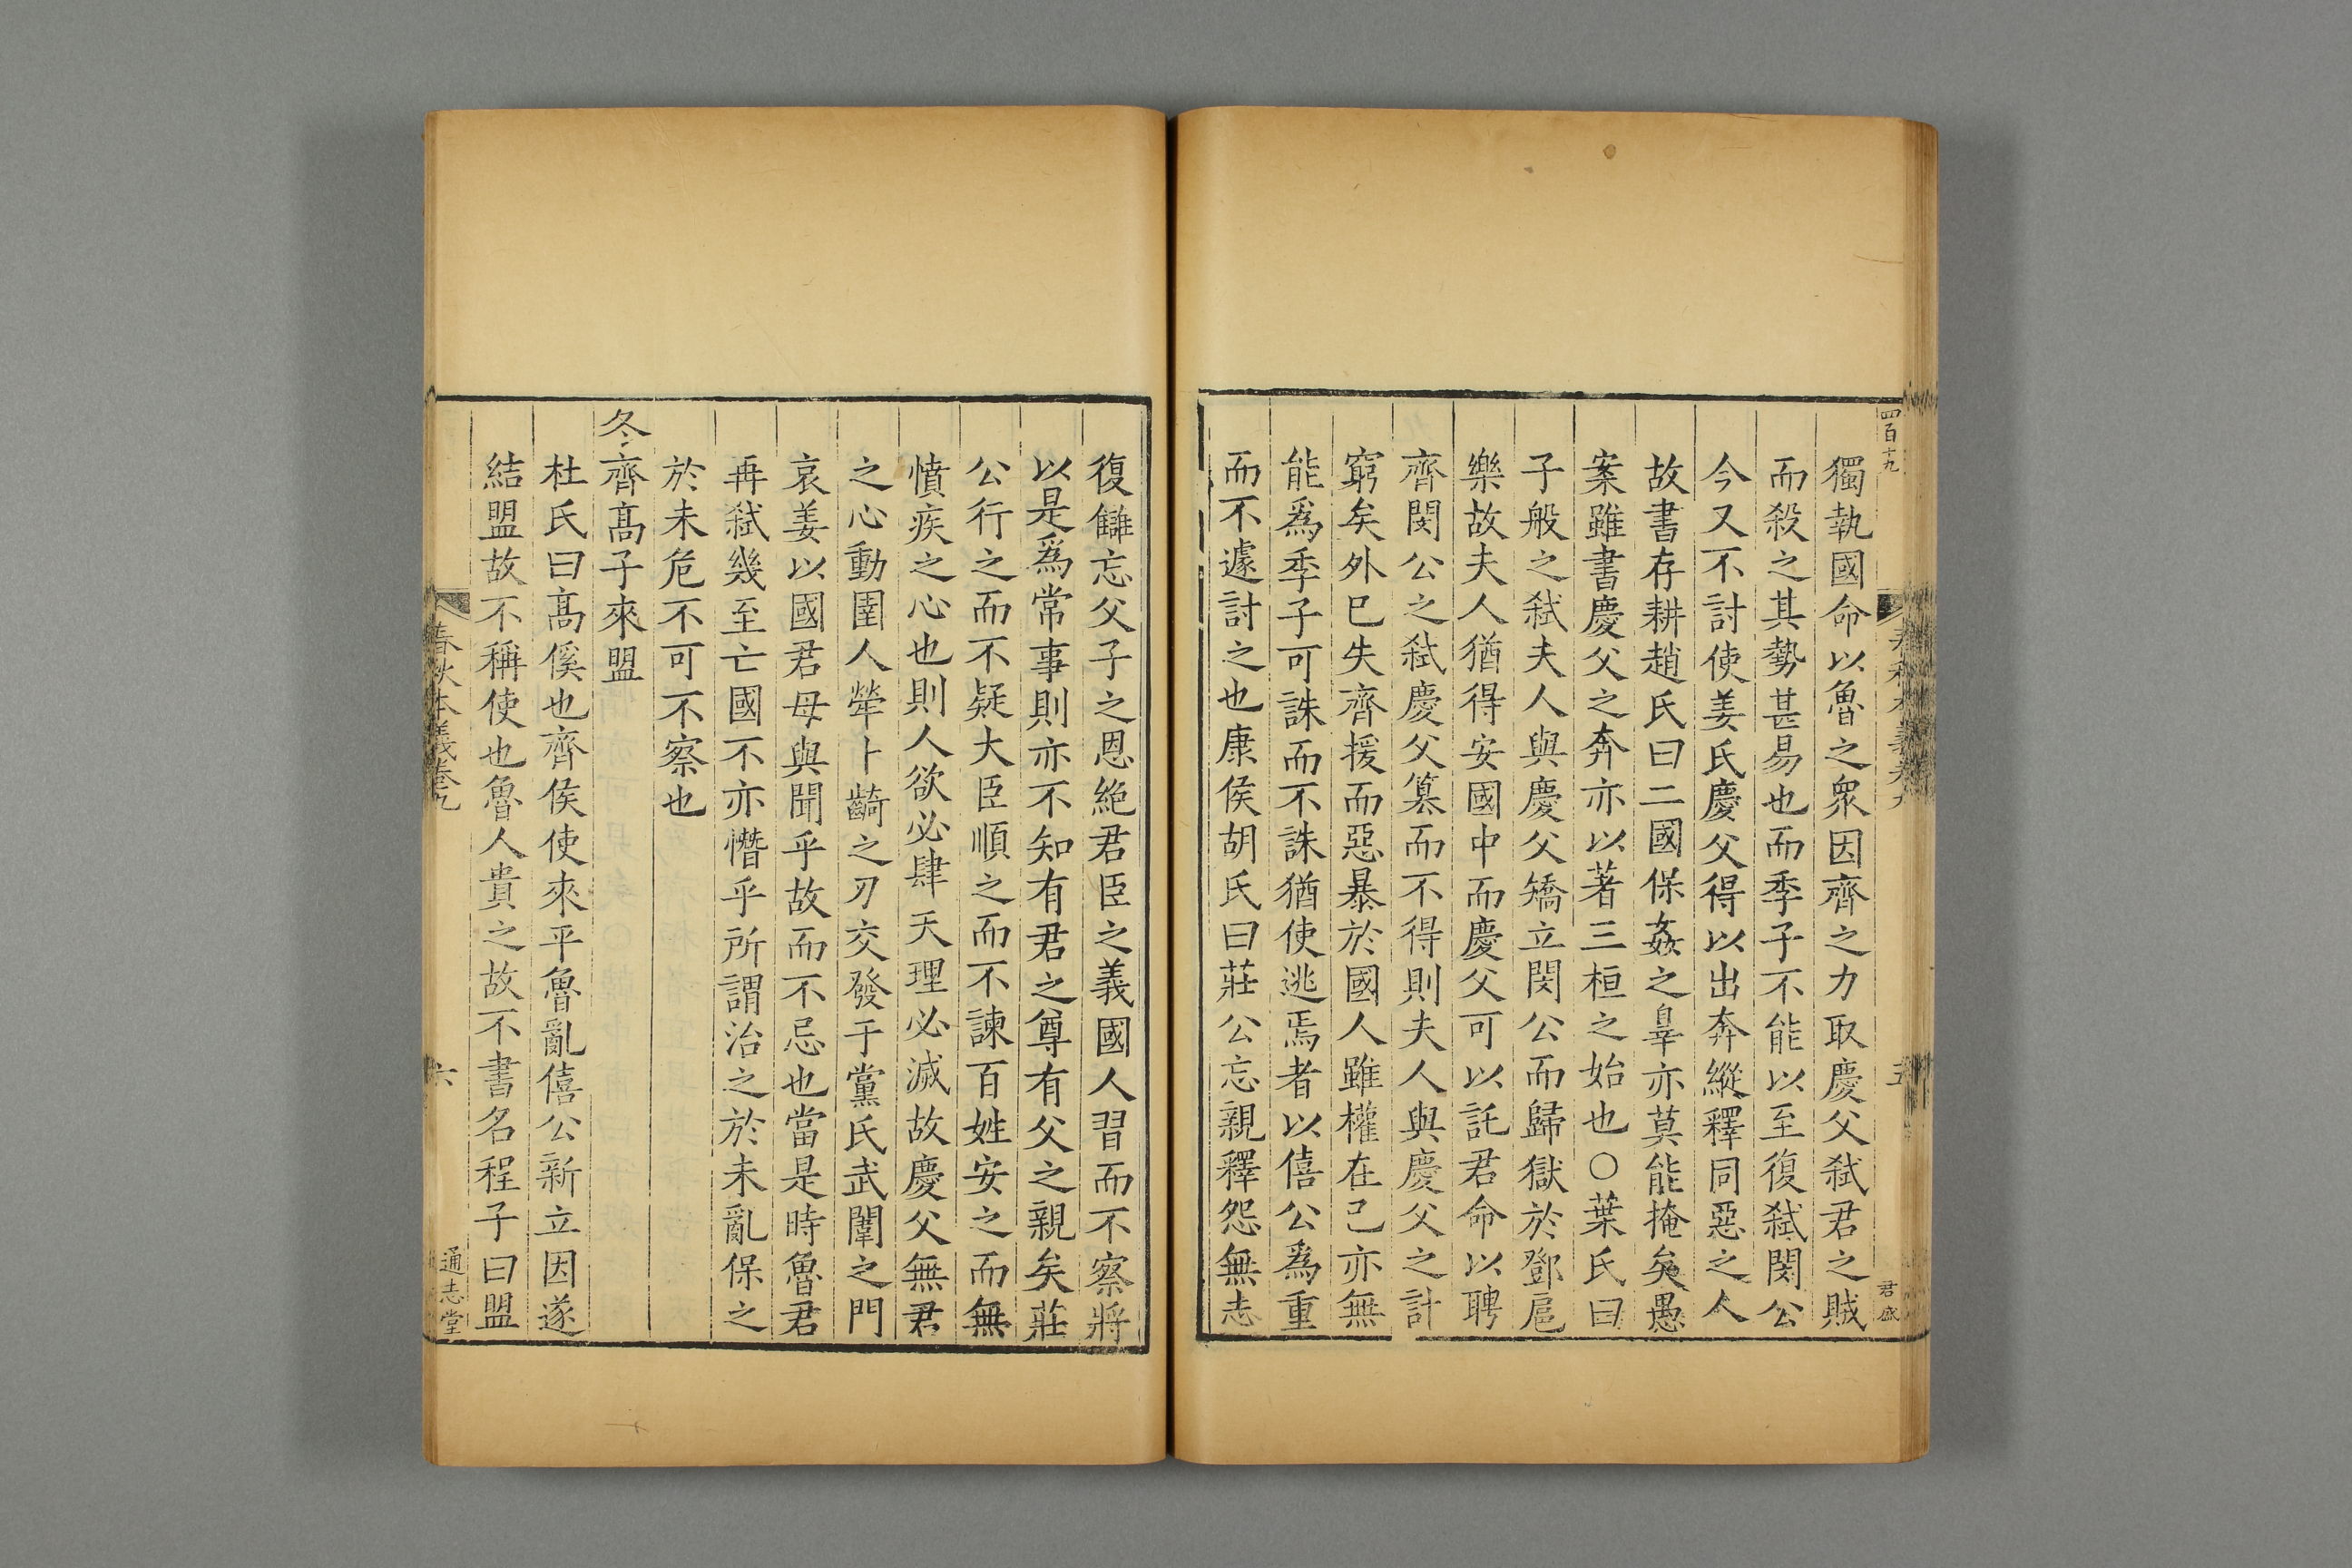 四百十九
春秋本義卷九
五
君盛
獨執國命以魯之衆因齊之力取慶父弑君之賊
而殺之其勢甚易也而季子不能以至復弑閔公
今又不討使姜氏慶父得以出奔縱釋同惡之人
故書存耕趙氏曰二國保姦之辠亦莫能掩矣愚
案雖書慶父之奔亦以著三桓之始也○葉氏曰
子般之弑夫人與慶父矯立閔公而歸獄於鄧扈
樂故夫人猶得安國中而慶父可以託君命以聘
齊閔公之弑慶父簒而不得則夫人與慶父之計
窮矣外已失齊援而惡暴於國人雖權在己亦無
能爲季子可誅而不誅猶使逃焉者以僖公爲重
而不遽討之也康侯胡氏曰莊公忘親釋怨無志
復讎忘父子之恩絶君臣之義國人習而不察將
以是爲常事則亦不知有君之尊有父之親矣莊
公行之而不疑大臣順之而不諫百姓安之而無
憤疾之心也則人欲必肆天理必滅故慶父無君
之心動圉人犖卜齮之刃交發于黨氏武闈之門
哀姜以國君母與聞乎故而不忌也當是時魯君
再弑幾至亡國不亦憯乎所謂治之於未亂保之
於未危不可不察也
冬齊髙子來盟
杜氏曰髙傒也齊侯使來平魯亂僖公新立因遂
結盟故不稱使也魯人貴之故不書名程子曰盟
春秋本義卷九
六
通志堂